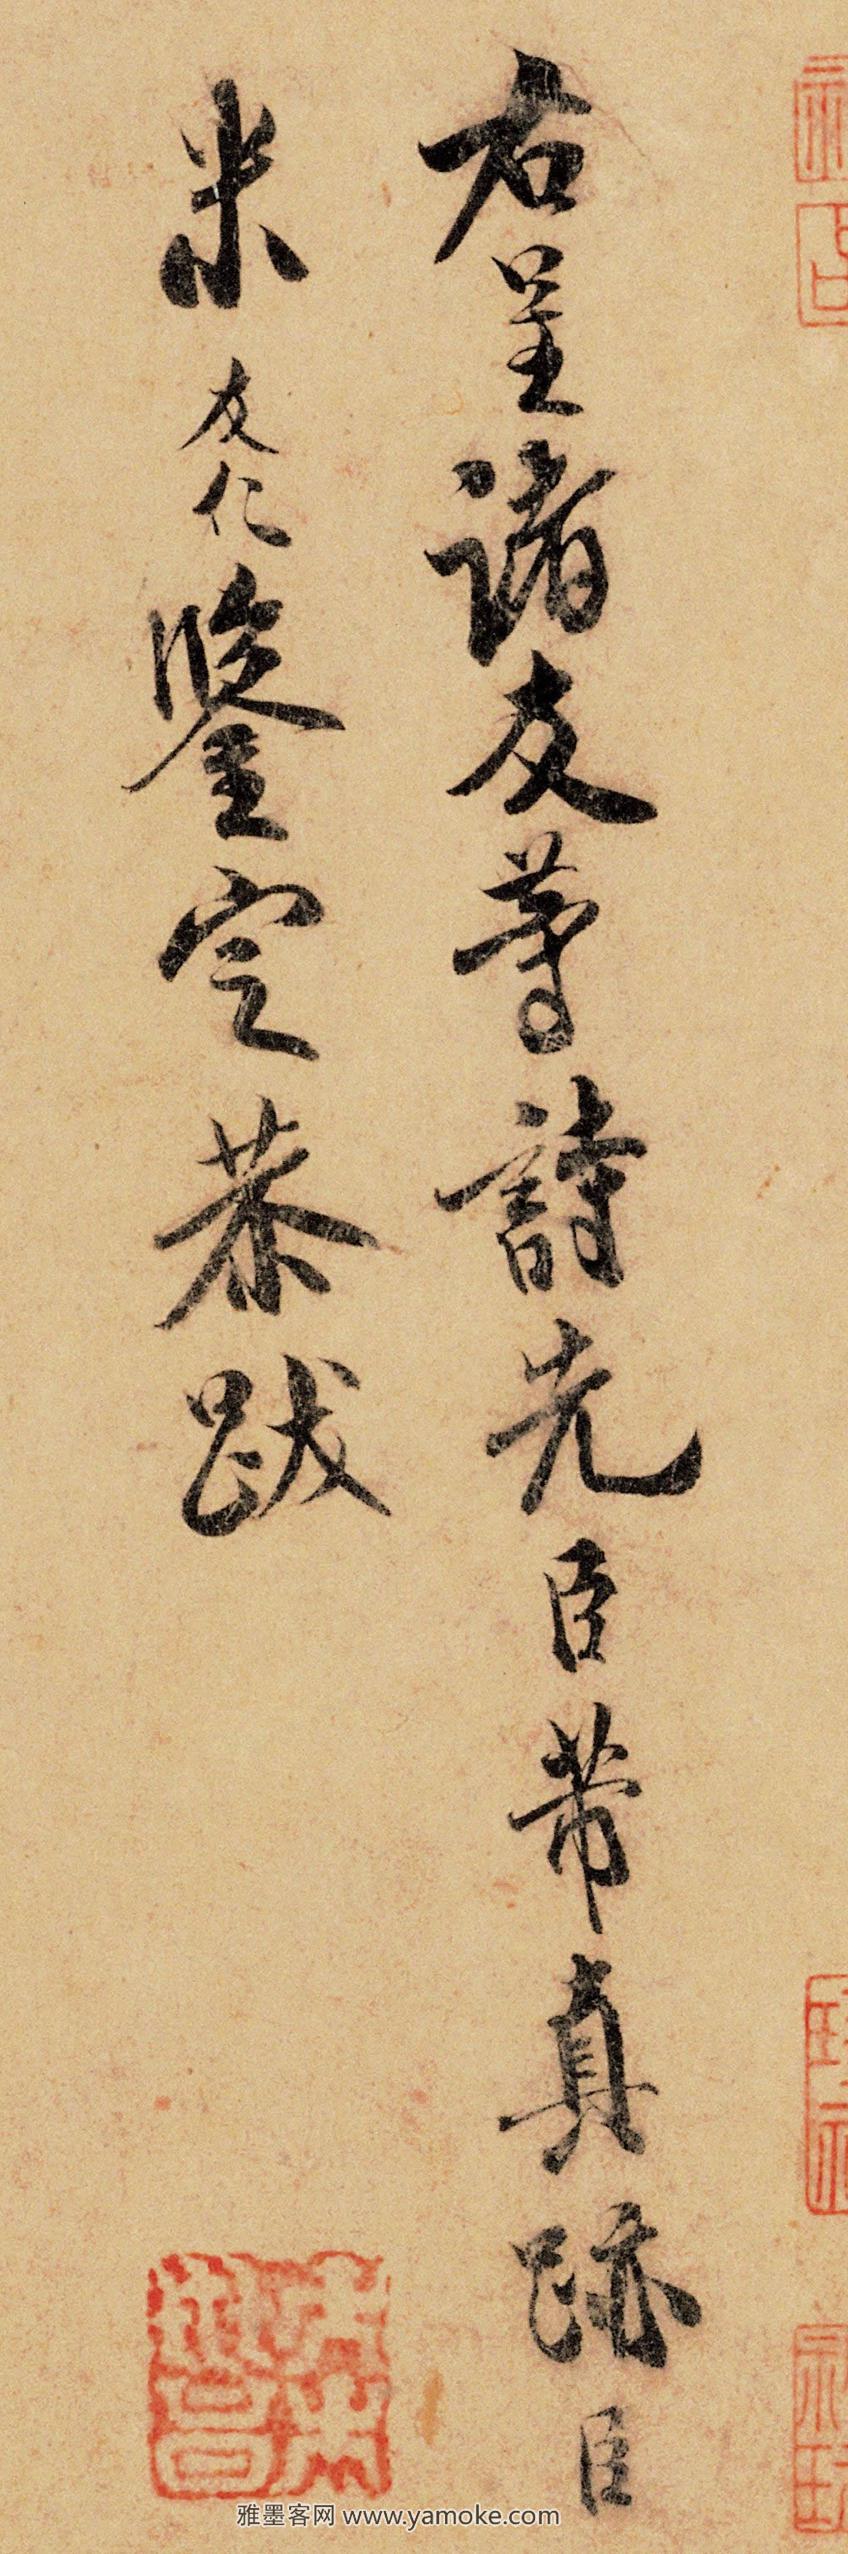 右呈诸友等詩先臣芾真跡臣
米友仁鑒定恭跋
雅墨客网 www.yamoke.com